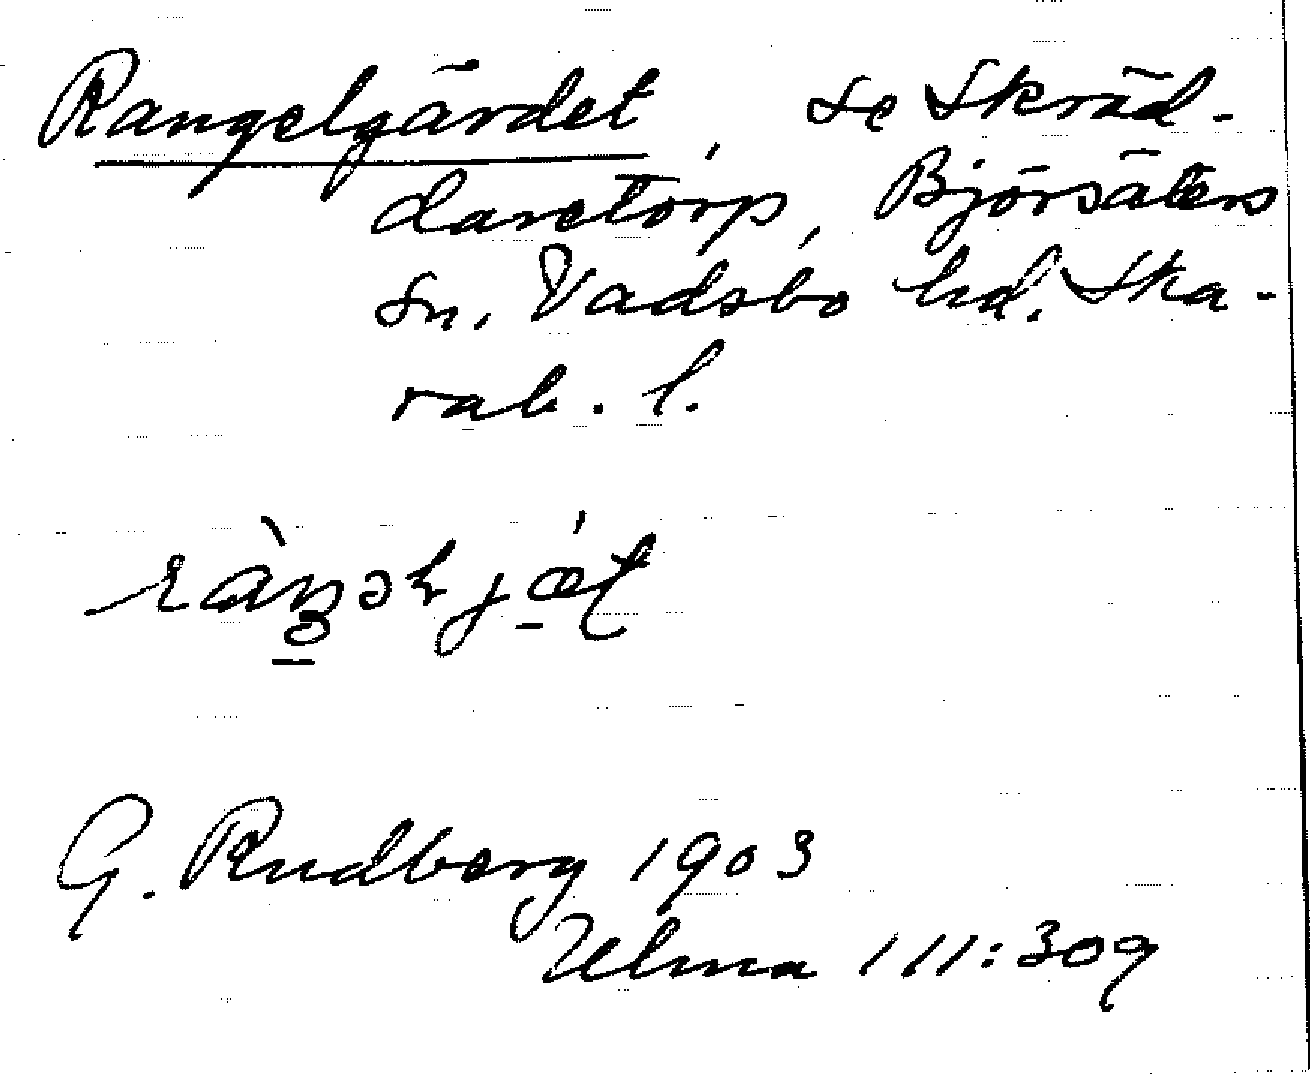 Rangelgärdet, se Skräd-
daretorp, Björsäters
sn, Vadsbo hd. Ska-
rab. l.
G. Rudberg 1903
Ulma 111:309